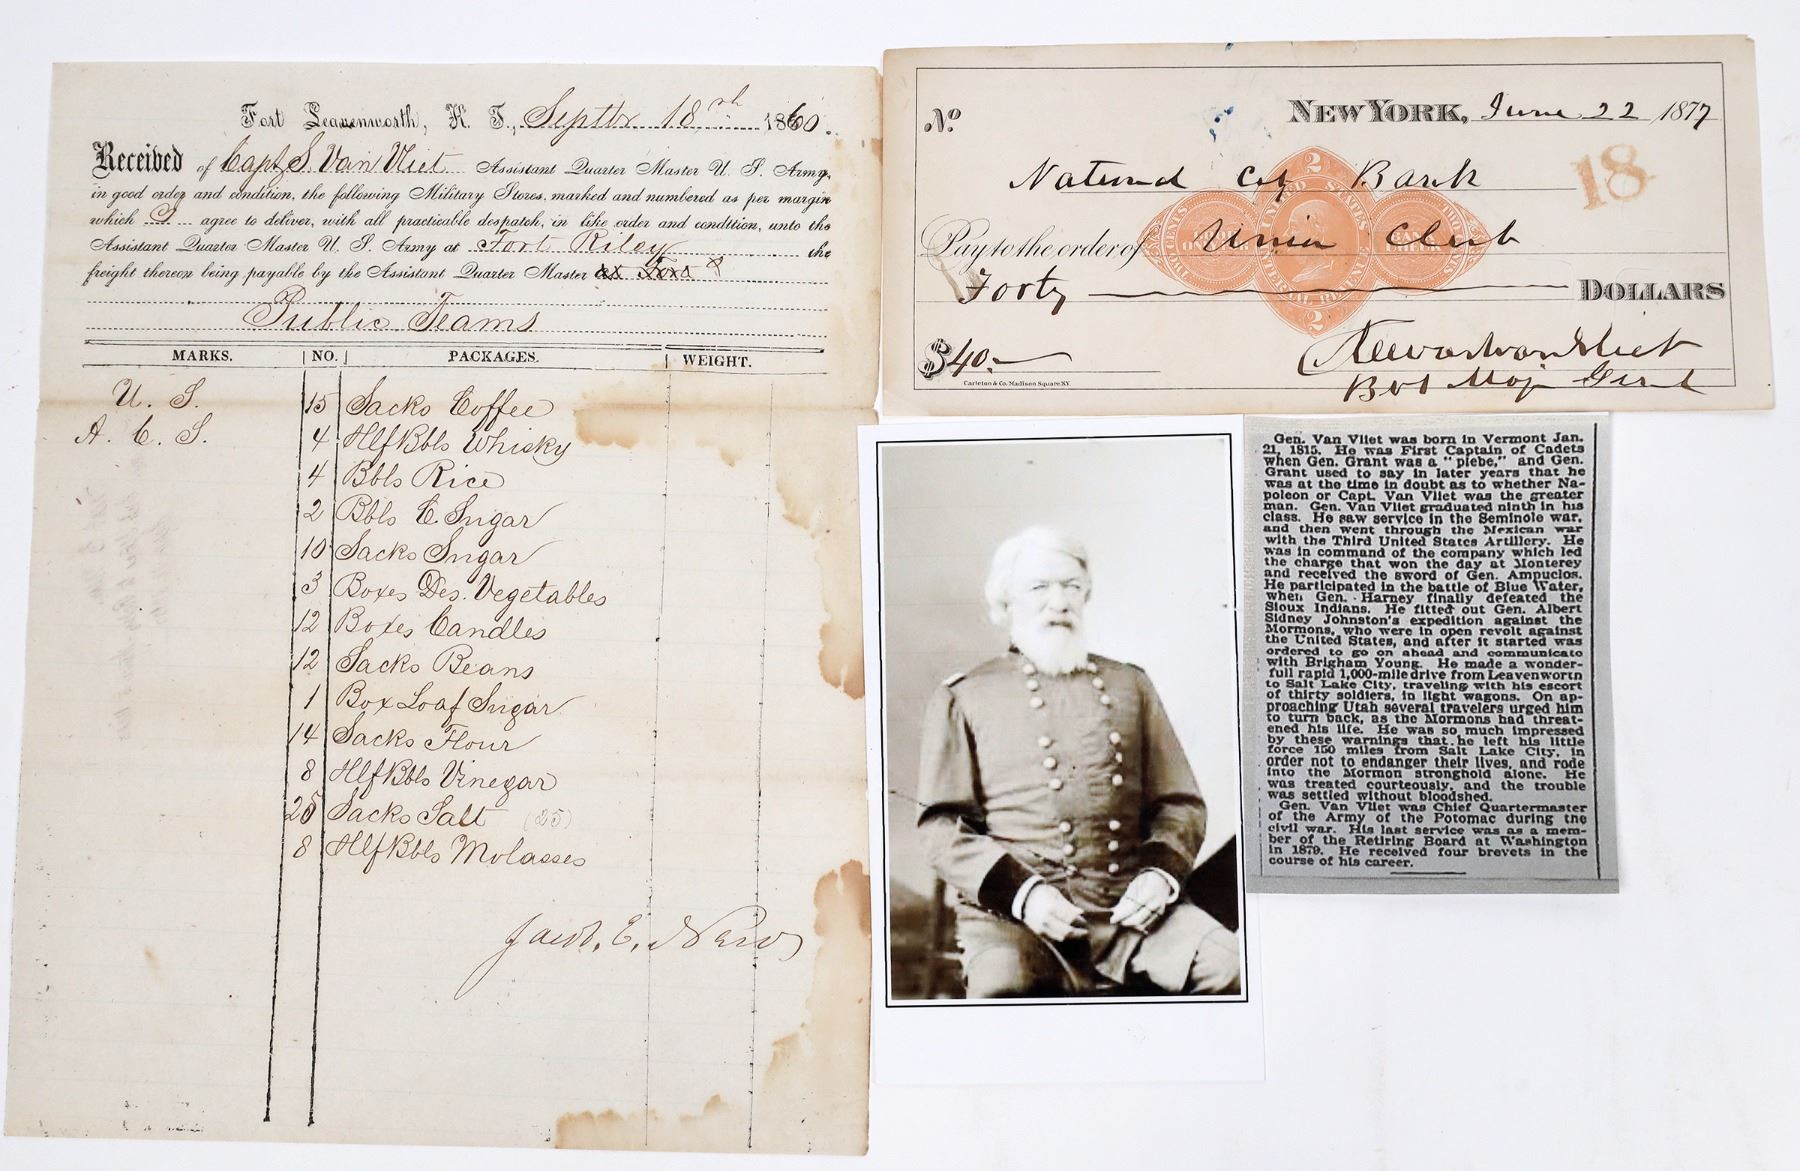 Fort Leavenworth, K. T., Septbr 18th 1860.
Received of Capt. S. Van Vliet Assistant Quarter Master U. S. Army,
in good order and condition, the following Military Stores, marked and numbered as per margin
which I agree to deliver, with all practicable despatch, in like order and condition, unto the
Assistant Quarter Master U. S. Army at Fort Riley the
freight thereon being payable by the Assistant Quarter Master at Fort
Public Teams
MARKS. NO. PACKAGES. WEIGHT.
U. S. 15 Sacks Coffee
A. C. S. 4 Hlf Bbls Whisky
4 Bbls Rice
2 Bbls C Sugar
10 Sacks Sugar
3 Boxes Des. Vegetables
12 Boxes Candles
12 Sacks Beans
1 Box Loaf Sugar
14 Sacks Flour
8 Hlf Bbls Vinegar
25 Sacks Salt (25)
8 Hlf Bbls Molasses
Jacob. E.
No NEW YORK, June 22 1877
18
National City Bank
Pay to the order of Union Club
Forty DOLLARS
$40.
Stewart Van Vliet
Bvt Maj Genl
Carleton & Co. Madison Square NY.
2
UNITED STATES
INTERNAL REVENUE
2
Gen. Van Vliet was born in Vermont Jan.
21, 1815. He was First Captain of Cadets
when Gen. Grant was a "plebe," and Gen.
Grant used to say in later years that he
was at the time in doubt as to whether Na-
poleon or Capt. Van Vliet was the greater
man. Gen. Van Vliet graduated ninth in his
class. He saw service in the Seminole war,
and then went through the Mexican war
with the Third United States Artillery. He
was in command of the company which led
the charge that won the day at Monterey
and received the sword of Gen. Ampucios.
He participated in the battle of Blue Water,
when Gen. Harney finally defeated the
Sioux Indians. He fitted out Gen. Albert
Sidney Johnston's expedition against the
Mormons, who were in open revolt against
the United States, and after it started was
ordered to go on ahead and communicate
with Brigham Young. He made a wonder-
full rapid 1,000-mile drive from Leavenworth
to Salt Lake City, traveling with his escort
of thirty soldiers, in light wagons. On ap-
proaching Utah several travelers urged him
to turn back, as the Mormons had threat-
ened his life. He was so much impressed
by these warnings that he left his little
force 150 miles from Salt Lake City, in
order not to endanger their lives, and rode
into the Mormon stronghold alone. He
was treated courteously, and the trouble
was settled without bloodshed.
Gen. Van Vliet was Chief Quartermaster
of the Army of the Potomac during the
civil war. His last service was as a mem-
ber of the Retiring Board at Washington
in 1879. He received four brevets in the
course of his career.